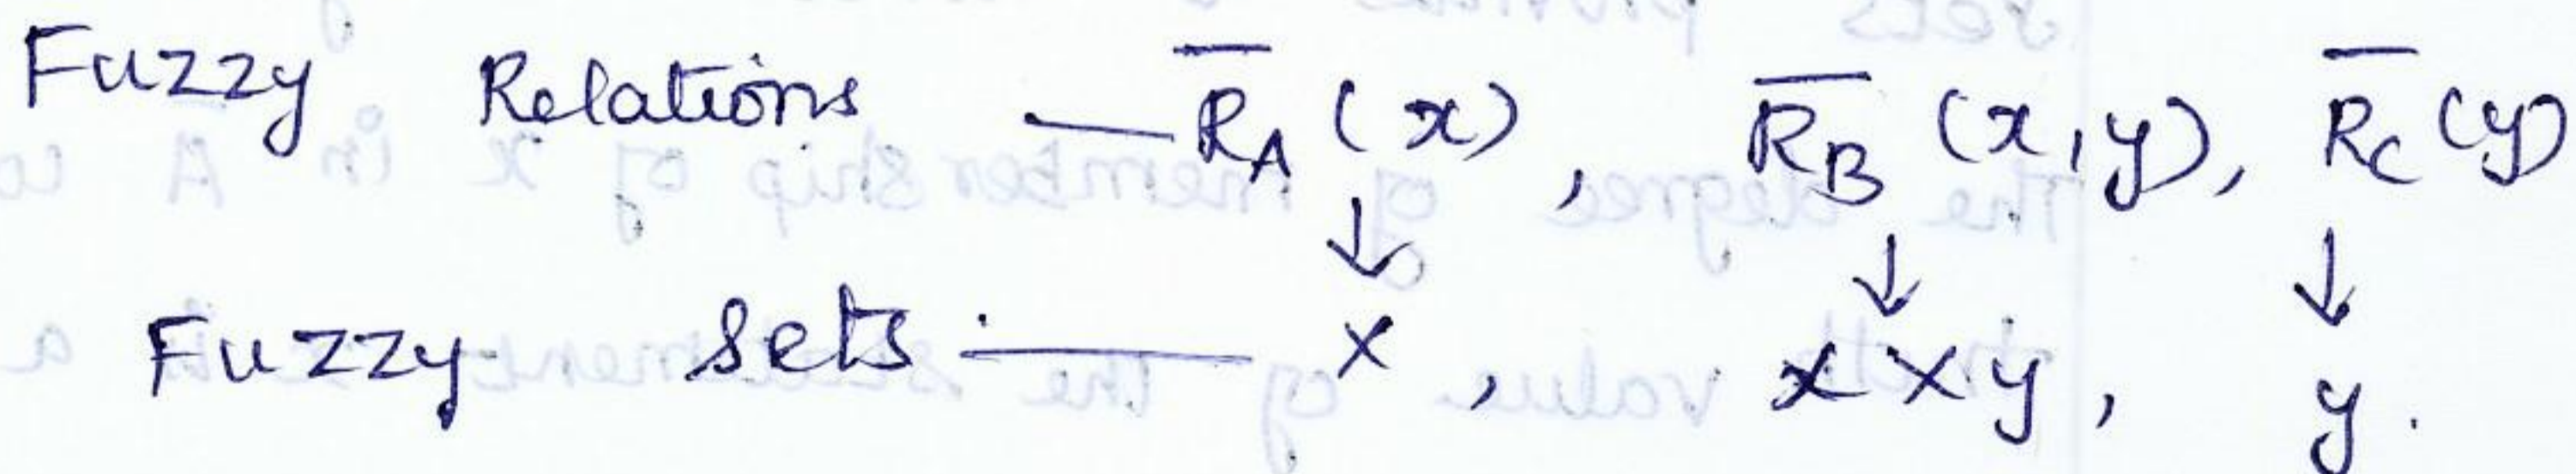 Fuzzy Relations — R̅_A (x), R̅_B (x,y), R̅_C (y)
↓ ↓ ↓
Fuzzy Sets — x, x × y, y.